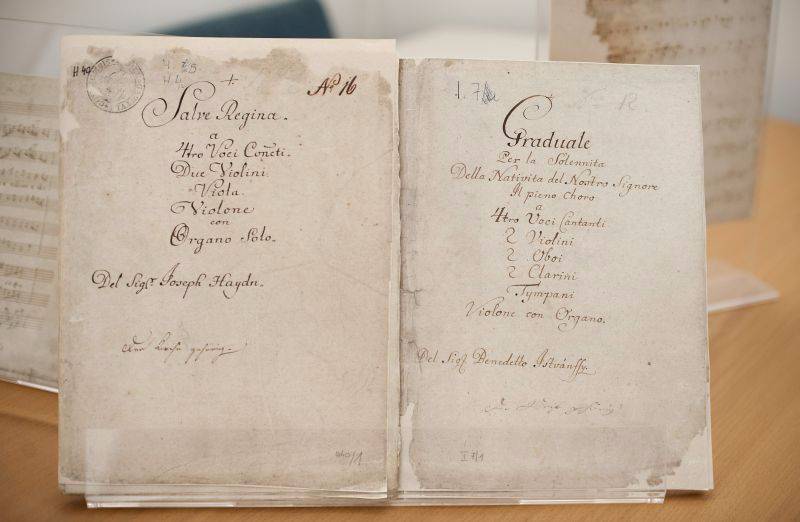 H 40
No. 16
Salve Regina.
a
4tro Voci Conc̃ti.
Due Violini
Viola.
Violone
con
Organo Solo.
Del Sigr. Joseph Haydn.
Zur Kirche gehörig.
Graduale
Per la Solennita
Della Nativita del Nostro Signore
Il pieno Choro
a
4tro Voci Cantanti
2 Violini
2 Oboi
2 Clarini
Tympani
Violone con Organo.
Del Sigr Benedetto Istvánffy.